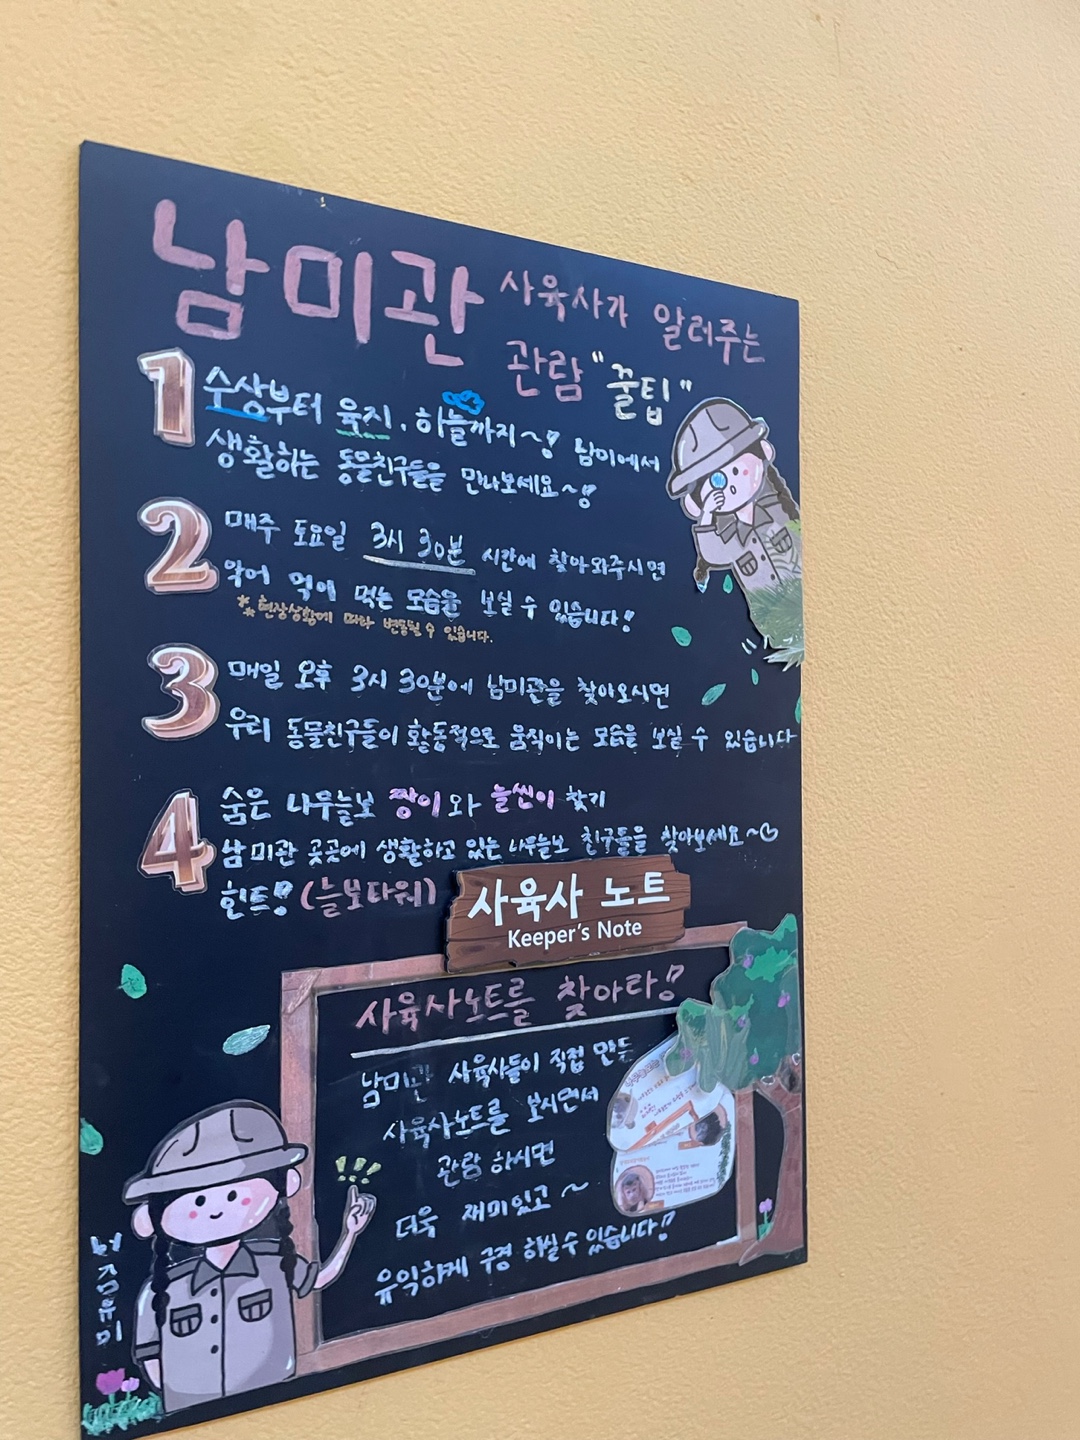 남미관 사육사가 알려주는
관람 "꿀팁"
1 수상부터 육지, 하늘까지~! 남미에서
생활하는 동물친구들을 만나보세요~!
2 매주 토요일 3시 30분 시간에 찾아와주시면
악어 먹이 먹는 모습을 보실 수 있습니다!
※현장상황에 따라 변동될 수 있습니다.
3 매일 오후 3시 30분에 남미관을 찾아오시면
우리 동물친구들이 활동적으로 움직이는 모습을 보실 수 있습니다
4 숨은 나무늘보 짱이와 늘씬이 찾기
남미관 곳곳에 생활하고 있는 나무늘보 친구들을 찾아보세요~♡
힌트! (늘보타워)
사육사 노트
Keeper's Note
사육사노트를 찾아라!
남미관 사육사들이 직접 만든
사육사노트를 보시면서
관람 하시면
더욱 재미있고 ~
유익하게 구경 하실수 있습니다!